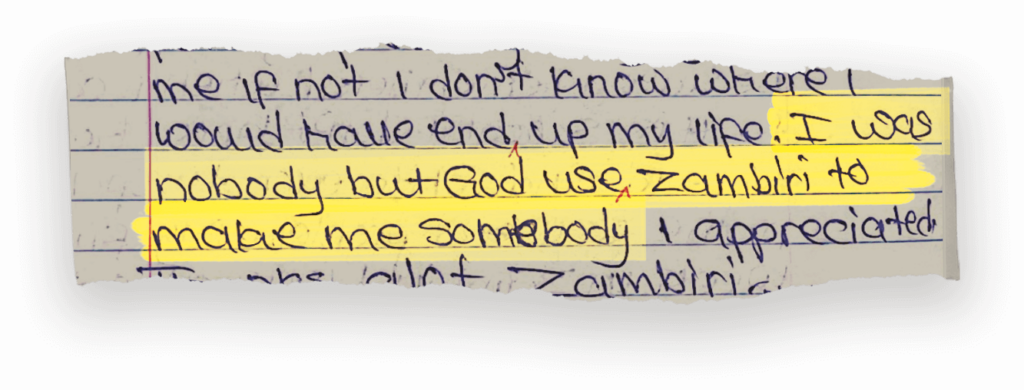 me if not I don't know where I
would have end up my life. I was
nobody but God use Zambiri to
make me somebody I appreciated
Zambiri